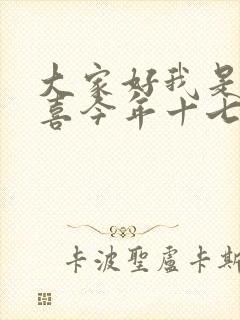 大家好我是
喜今年十七
卡波聖盧卡斯